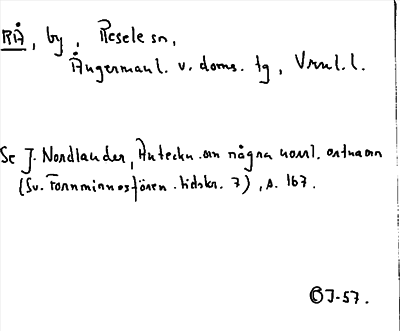 RÅ, by, Resele sn,
Ångermanl. v. doms. tg, Vrnl. l.
Se J. Nordlander, Anteckn. om några norrl. ortnamn
(Sv. Fornminnesfören. tidskr. 7), s. 167.
OJ-57.